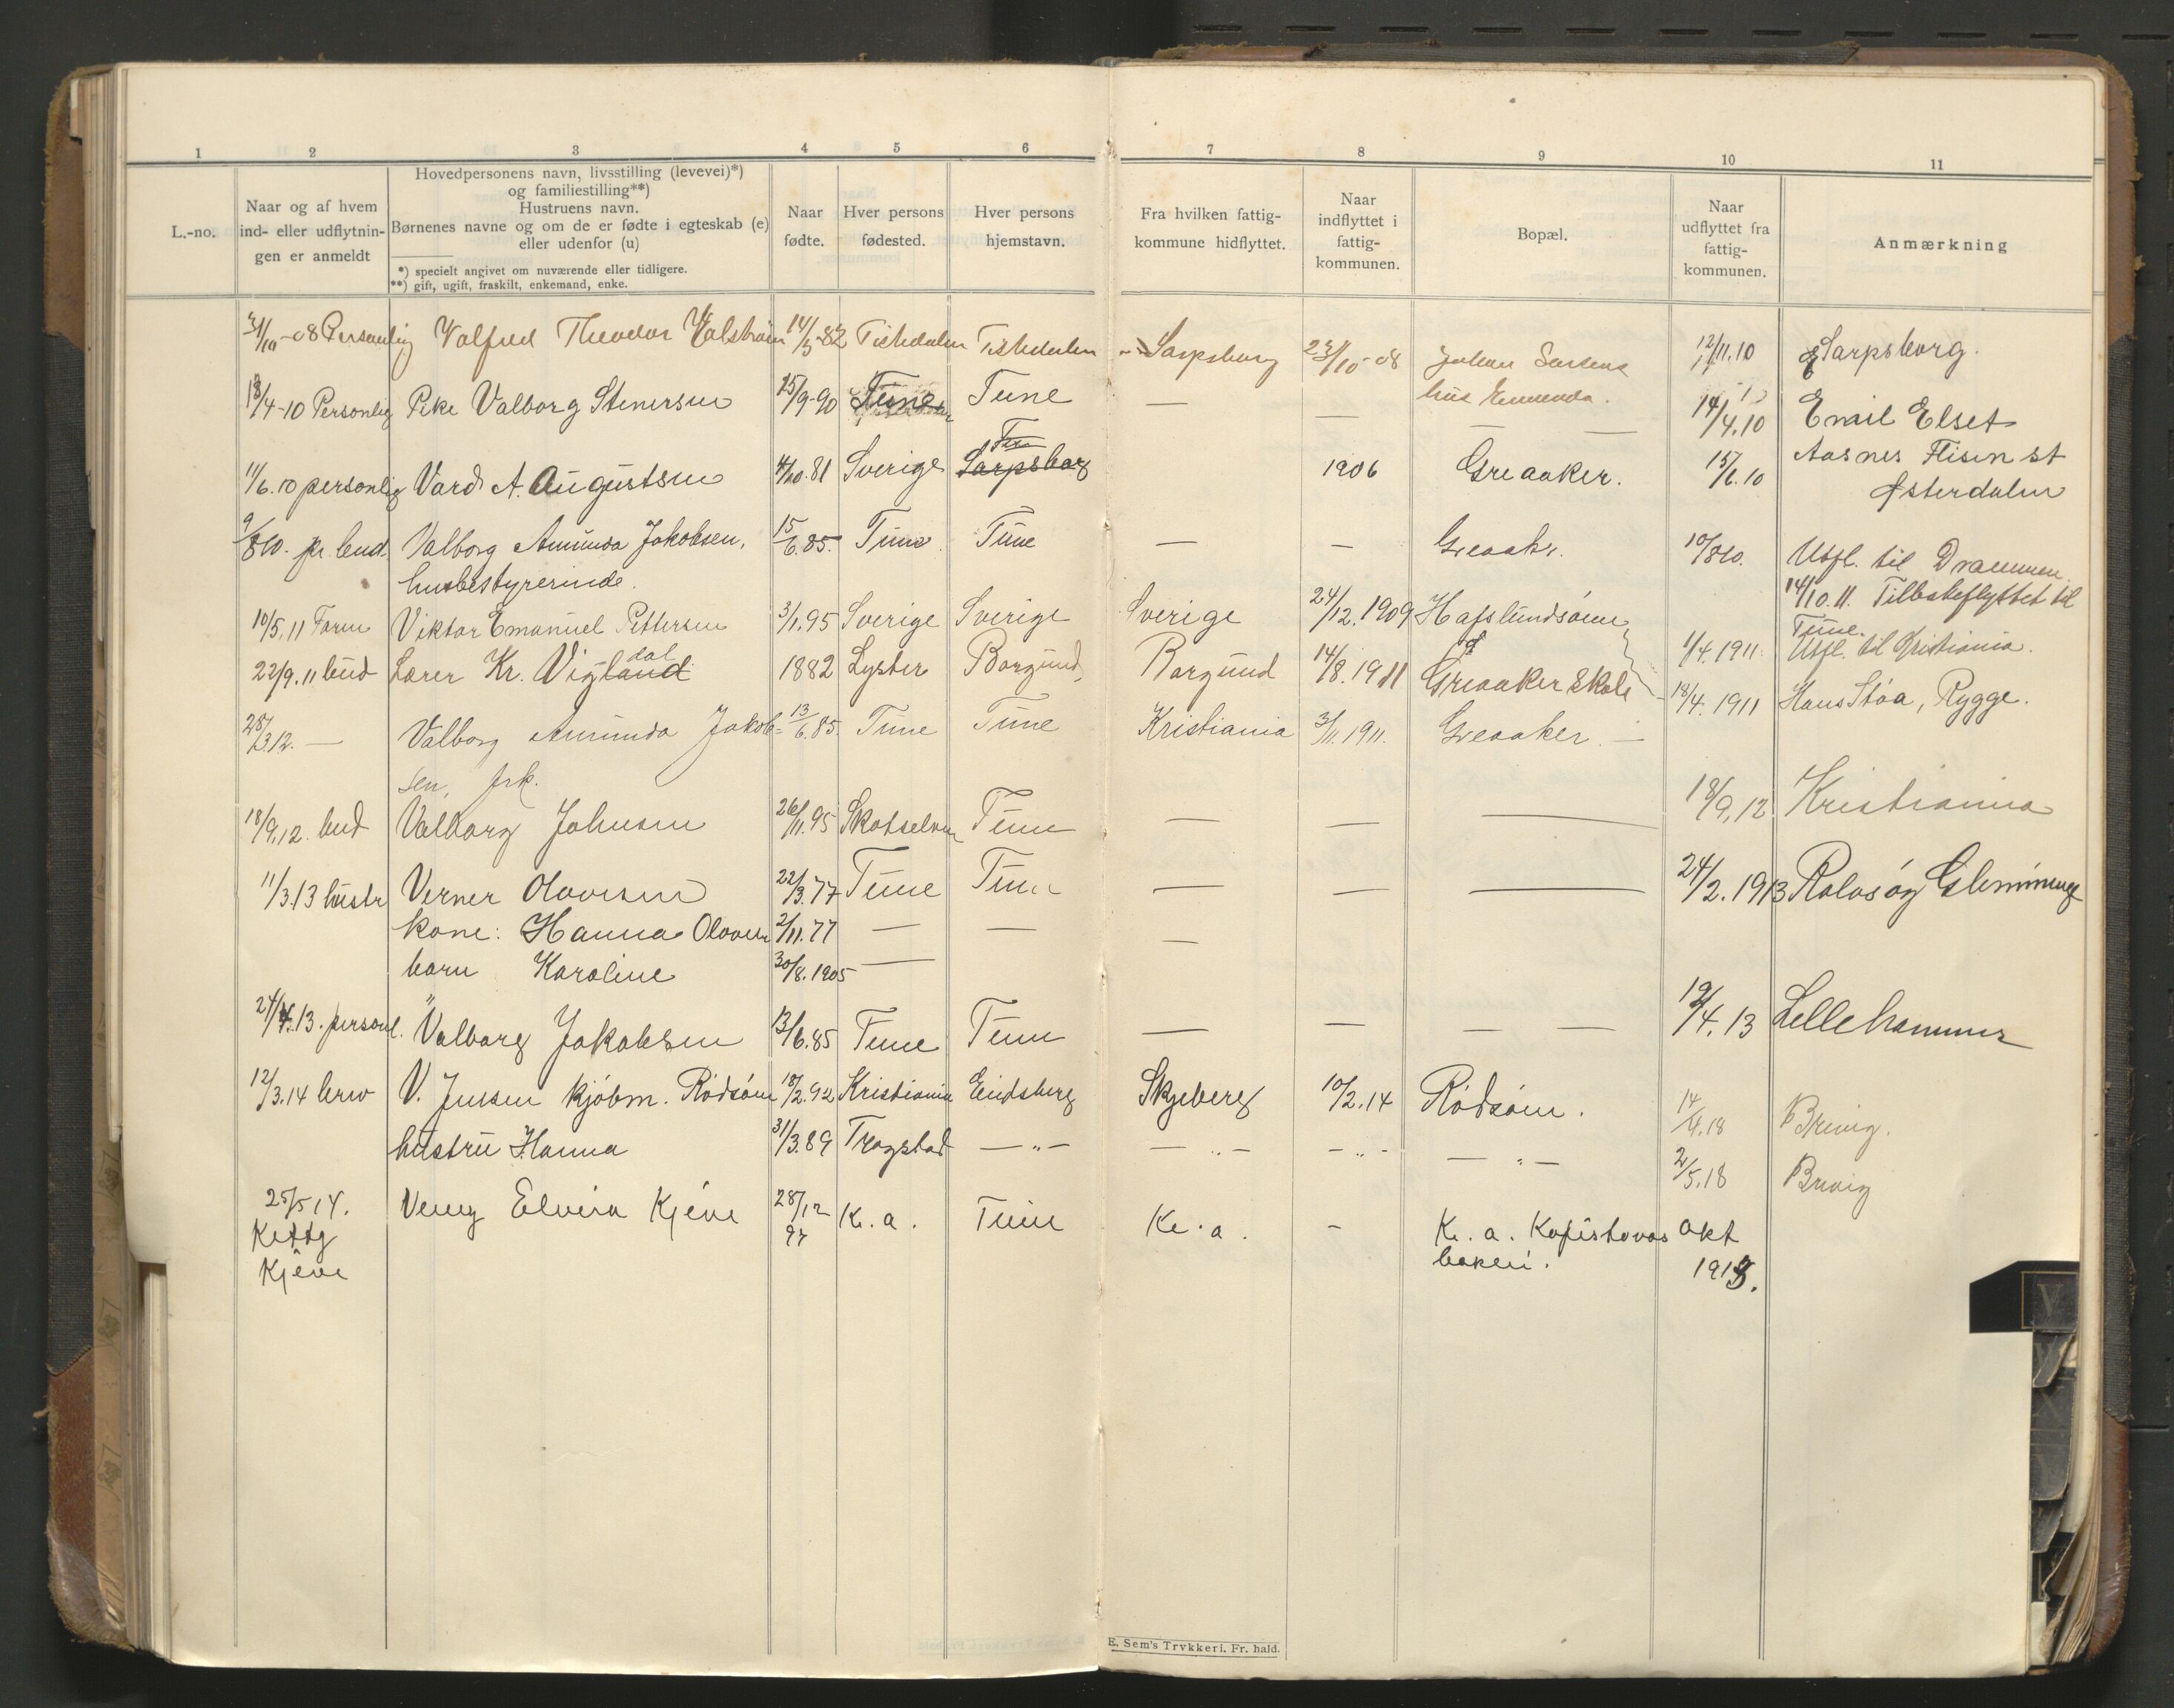 1 2 3 4 5 6 7 8 9 10 11
L.-no.
Naar og af hvem
ind- eller udflytnin-
gen er anmeldt
Hovedpersonens navn, livsstilling (levevei)*)
og familiestilling**)
Hustruens navn.
Børnenes navne og om de er fødte i egteskab (e)
eller udenfor (u)
*) specielt angivet om nuværende eller tidligere.
**) gift, ugift, fraskilt, enkemand, enke.
Naar
fødte.
Hver persons
fødested.
Hver persons
hjemstavn.
Fra hvilken fattig-
kommune hidflyttet.
Naar
indflyttet i
fattig-
kommunen.
Bopæl.
Naar
udflyttet fra
fattig-
kommunen.
Anmærkning
Personlig Valfred Theodor 14/5-82 Tistedalen Tistedalen Sarpsborg 23/10-08 Johan 12/11.10 Sarpsborg.
hus
13/4-10 Personlig Pike Valborg Stenersen 25/9-90 Tune Tune — — — — 14/4.10 Emil Elset
Aasnes Flisen st
Østerdalen
11/6.10 personlig A. Augustsen 4/10.81 Sverige Sarpsborg 1906 Greaaker. 15/6.10
9/8 10. pr. bud. Valborg Amunda Jakobsen, 15/6.85. Tune Tune — — Greaaker. 10/8 10. Utfl. til Drammen.
husbestyrerinde.
14/10.11. Tilbakeflyttet til
Tune.
10/5.11 Viktor Emanuel Pettersen 3/1.95 Sverige Sverige Sverige 24/12.1909 Hafslundsøen 1/4.1911 Utfl. til Kristiania.
22/9.11 bud Lærer Kr. Vigland dal 1882 Lyster Borgund Borgund 14/8.1911 Greaaker Skole 18/4.1911 Hans Støa, Rygge.
28/3 12. — Valborg Amunda Jakob- 13/6.85. Tune Tune Kristiania 3/11.1911. Greaaker. —
sen, frk.
18/9.12. bud Valborg Johnsen 26/11.95 Skotselven Tune — — — 18/9.12 Kristiania
11/3.13 hustr Verner Olavesen 22/3.77 Tune Tune — — — 24/2.1913 Rolvsøy Glemminge
kone: Hanna 2/11.77 — — —
barn Karoline 30/8.1905 —
24/4.13. personl. Valborg Jakobsen 13/6.85 Tune Tune — — — — 19/4.13 Lellehammer
12/3.14 brev V. Jensen kjøbm. Rødsøen 18/2.92 Kristiania Eidsberg Skjeberg 10/2.14 Rødsøen. 14/4.18
hustru Hanna 31/3.89 Trøgstad — „ — — „ — - „ - — „ — 2/5.18
25/5 14. Venny Elvira Kjéve 28/12 K. a. Tune Kr. a. - Kr. a. Kafistovas okt
Ketty 97 bakeri. 1913.
Kjéve
E. Sem's Trykkeri. Fr. hald.